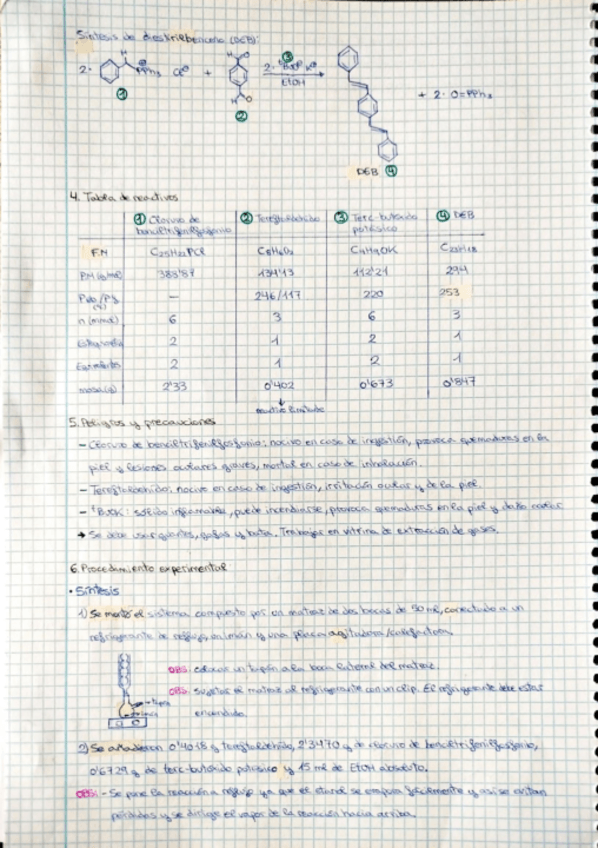 Síntesis de diestirilbenceno (DEB):
2· PPh₃ Cl⊖ + 2· ᵗBuO⊖ K⊕ + 2· O=PPh₃
H H O EtOH
① ② H O ③
DEB ④
4. Tabla de reactivos
① Cloruro de benciltrifenilfosfonio ② Tereftaldehído ③ Terc-butóxido potásico ④ DEB
F.M C₂₅H₂₂PCl C₈H₆O₂ C₄H₉OK C₂₂H₁₈
P.M (g/mol) 388'87 134'13 112'21 294
P.eb/P.f (ºC) — 246/117 220 253
n (mmol) 6 3 6 3
Estequiometría 2 1 2 1
2 1 2 1
masa (g) 2'33 0'402 0'673 0'847
↓
reactivo limitante
5. Peligros y precauciones
- Cloruro de benciltrifenilfosfonio: nocivo en caso de ingestión, provoca quemaduras en la
piel y lesiones oculares graves, mortal en caso de inhalación.
- Tereftaldehído: nocivo en caso de ingestión, irritación ocular y de la piel.
- ᵗBuOK: sólido inflamable, puede incendiarse, provoca quemaduras en la piel y daño ocular
→ Se debe usar guantes, gafas y bata. Trabajar en vitrina de extracción de gases.
6. Procedimiento experimental
• Síntesis
1) Se montó el sistema compuesto por un matraz de dos bocas de 50 ml, conectado a un
refrigerante de reflujo, un imán y una placa agitadora/calefactora.
OBS: colocar un tapón a la boca lateral del matraz.
OBS: sujetar el matraz al refrigerante con un clip. El refrigerante debe estar
→ tapón
encendido.
2) Se añadieron 0'4018 g tereftaldehído, 2'3470 g de cloruro de benciltrifenilfosfonio,
0'6729 g de terc-butóxido potásico y 15 ml de EtOH absoluto.
OBS: - Se pone la reacción a reflujo ya que el etanol se evapora fácilmente y así se evitan
pérdidas y se dirige el vapor de la reacción hacia arriba.